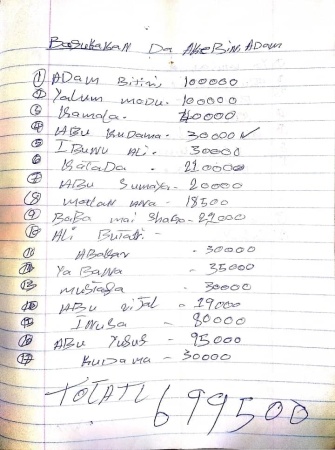 Basukakan Da AkeBin Adam
① ADam Bitiri 100000
② Yalum modu. 100000
③ Kamala. 40000
④ ABU KuDama. 30000 ✓
⑤ IBUNU Ali. 30000
⑥ KalaDa. 21000
⑦ ABU Sumaya. 20000
⑧ mallan 18500
⑨ BaBa mai Shago. 21000
⑩ Ali Butati. -
⑪ ABakar - 30000
⑫ Ya BaNa - 35000
⑬ mustafa - 30000
ABU - 19000
INUSa - 80000
ABU Yusus - 95000
⑰ KuDama - 30000
TOTATL 699500